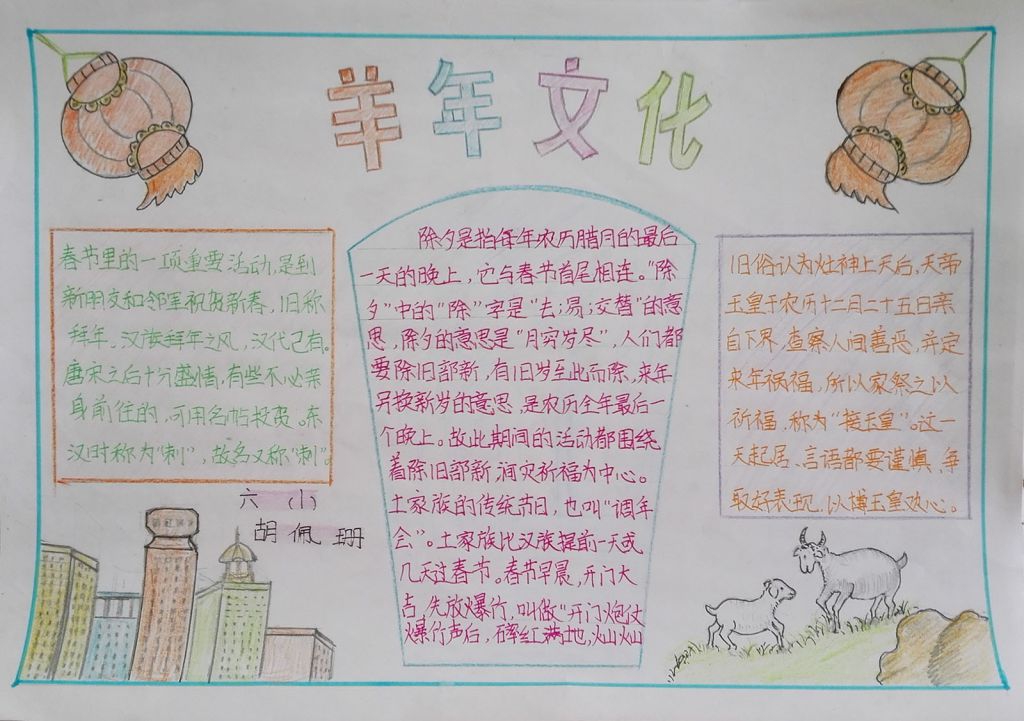 羊年文化
春节里的一项重要活动,是到
新朋友和邻里祝贺新春,旧称
拜年。汉族拜年之风,汉代已有。
唐宋之后十分盛情,有些不必亲
身前往的,可用名帖投贺。东
汉时称为“刺”,故名又称“刺”。
六 (1)
胡佩珊
除夕是指每年农历腊月的最后
一天的晚上,它与春节首尾相连。“除
夕”中的“除”字是“去;易;交替”的意
思,除夕的意思是“月穷岁尽”,人们都
要除旧部新,有旧岁至此而除,来年
另换新岁的意思,是农历全年最后一
个晚上。故此期间的活动都围绕
着除旧部新,消灾祈福为中心。
土家族的传统节日,也叫“调年
会”。土家族比汉族提前一天或
几天过春节。春节早晨,开门大
吉,先放爆竹,叫做“开门炮仗
爆竹声后,碎红满地,灿灿
旧俗认为灶神上天后,天帝
玉皇于农历十二月二十五日亲
自下界,查察人间善恶,并定
来年祸福,所以家祭之以
祈福,称为“接玉皇”。这一
天起居、言语都要谨慎,争
取好表现,以博玉皇欢心。